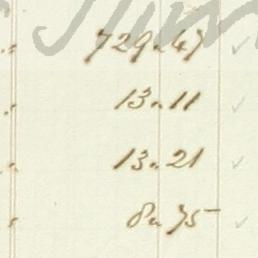 729.47
13.11
13.21
8.75